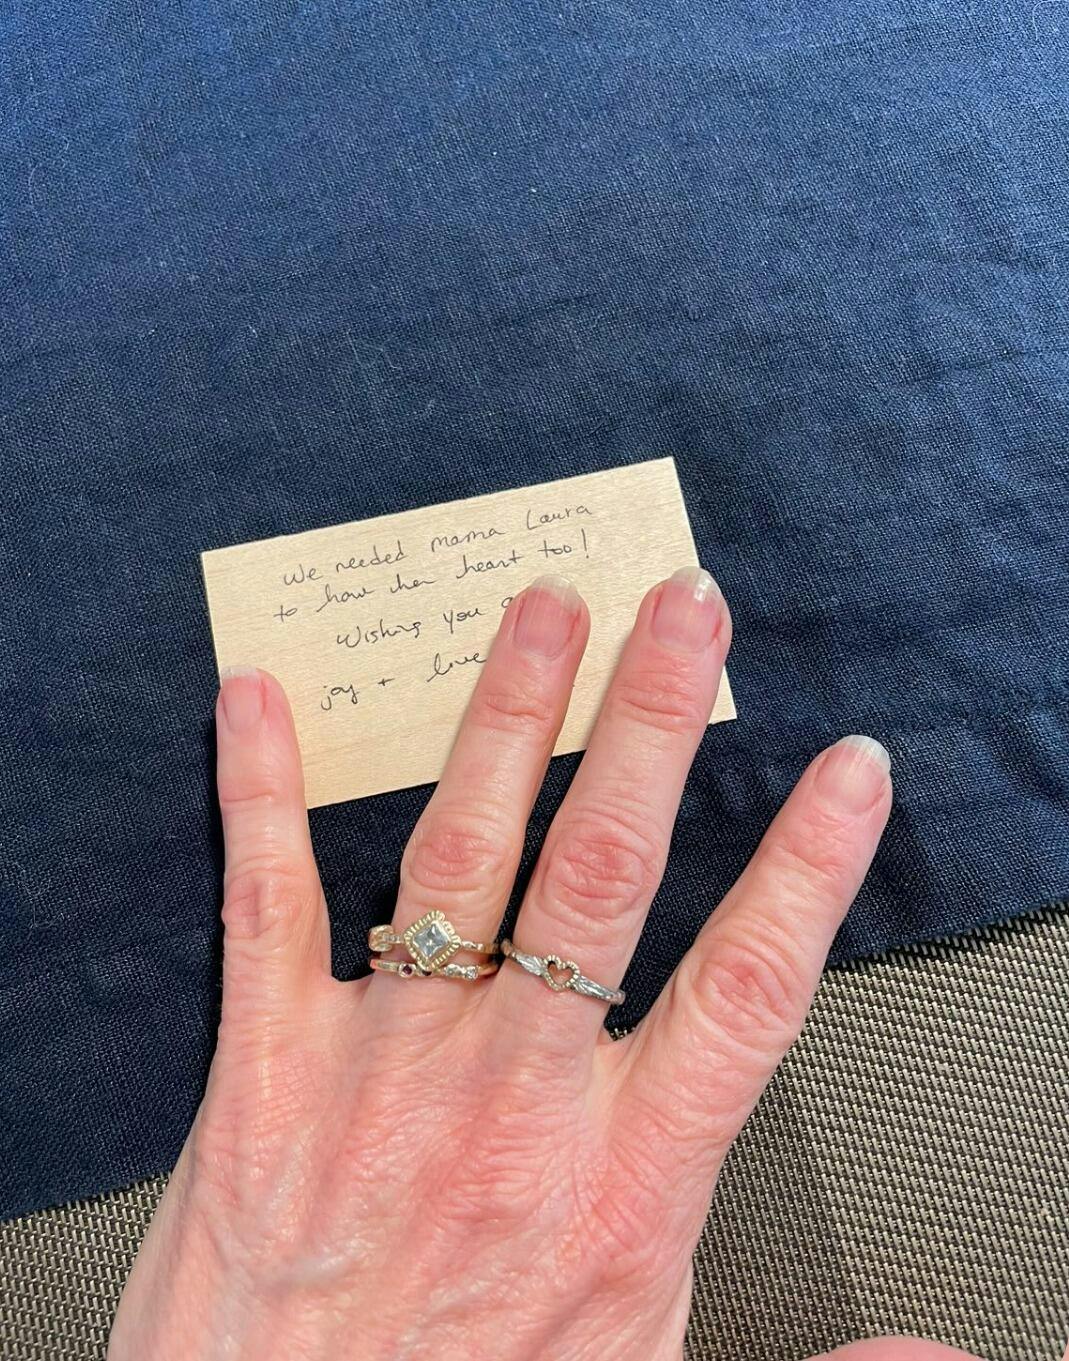 We needed mama Laura
to have her heart too!
Wishing you
joy + love